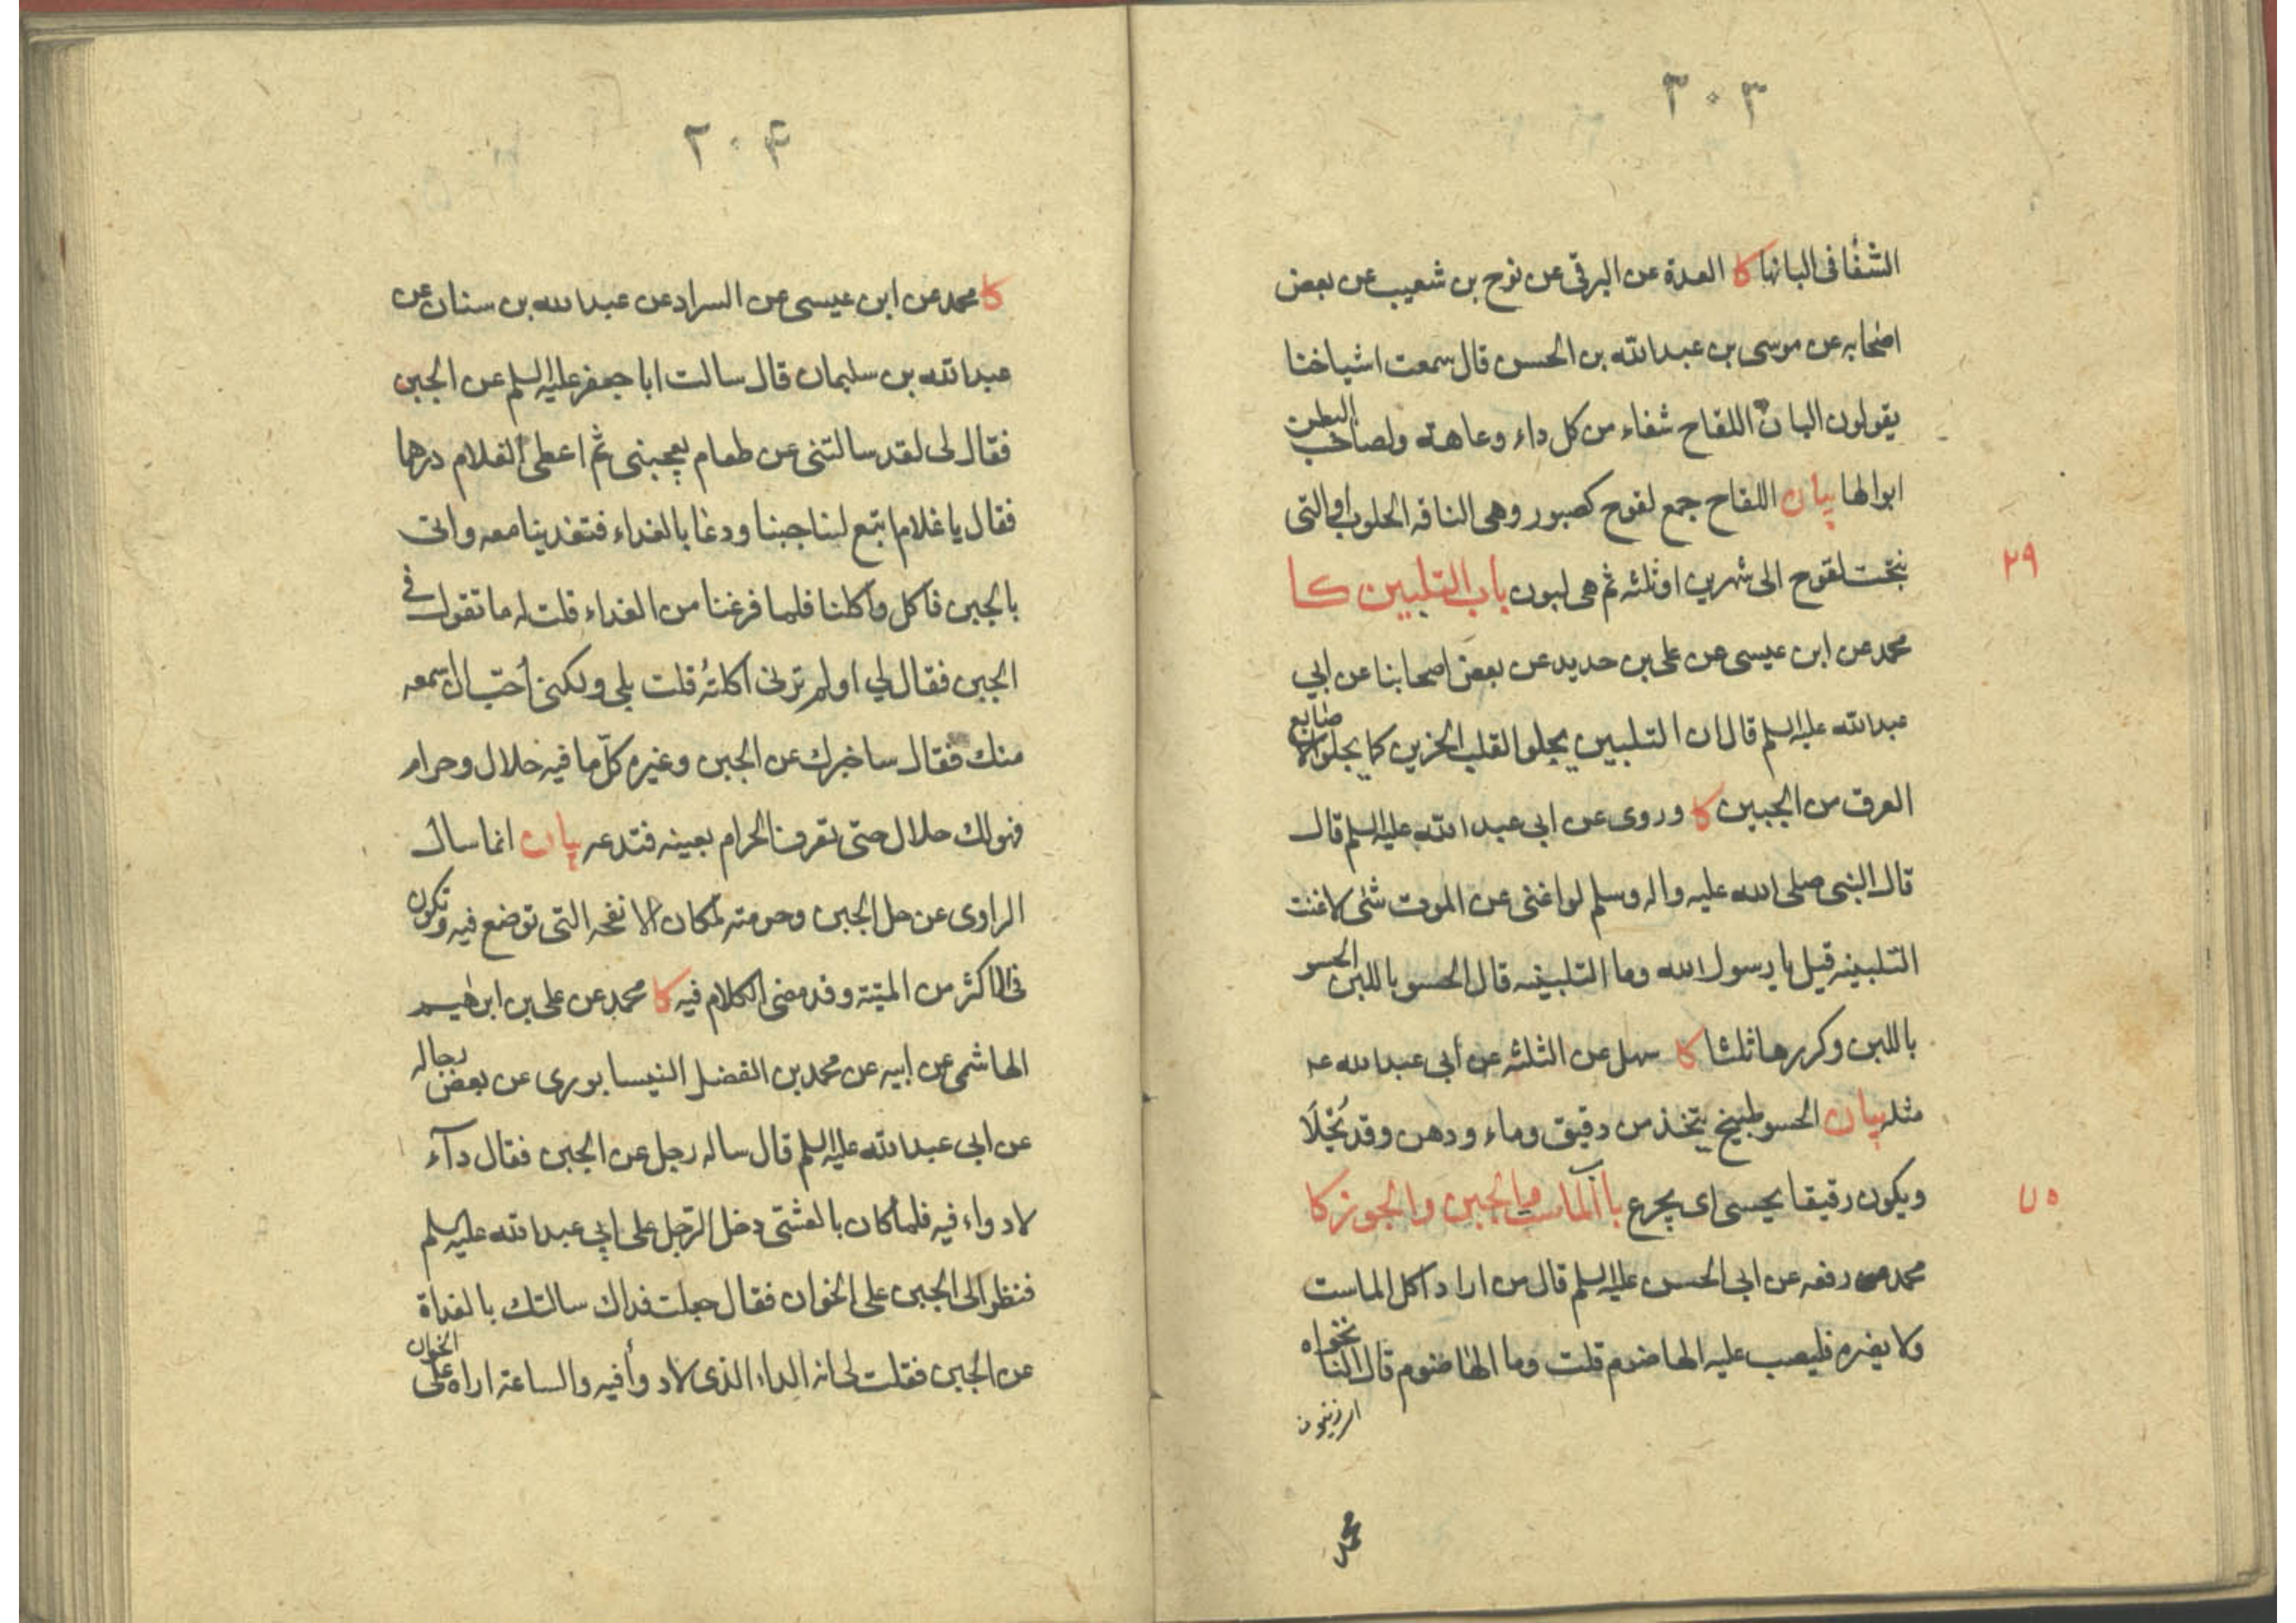 ٣٠٣
الشفا فى البانها كا العدة عن البرقى عن نوح بن شعيب عن بعض
اصحابه عن موسى بن عبدالله بن الحسن قال سمعت اشياخنا
يقولون البان اللقاح شفاء من كل داء وعاهة ولصاحب البطن
ابوالها بيان اللقاح جمع لقوح كصبور وهى الناقه الحلوب او التى
نتجت لقوح الى شهرين او ثلثه ثم هى لبون باب التلبين كا
٢٩
محمد عن ابن عيسى عن على بن حديد عن بعض اصحابنا عن ابي
عبدالله عليه السلم قال ان التلبين يجلو القلب الحزين كما يجلو الاصابع
العرق من الجبين كا وروى عن ابى عبدالله عليه السلم قال
قال النبى صلى الله عليه واله وسلم لو اغنى عن الموت شئ لاغنت
التلبينه قيل يا رسول الله وما التلبينه قال الحسو باللبن الحسو
باللبن وكررها ثلثا كا سهل عن الثلثه عن أبي عبدالله ع
مثله بيان الحسو طبيخ يتخذ من دقيق وماء ودهن وقد يُحْلَا
ويكون رقيقا يحسى اى يجرع باب الماست والجبن والجوز كا
٧٥
محمد رفعه عن ابى الحسن عليه السلم قال من اراد اكل الماست
ولا يضره فليصب عليه الهاضوم قلت وما الهاضوم قال النانخواه
محمد
٢٠۴
كا محمد عن ابن عيسى عن السراد عن عبدالله بن سنان عن
عبدالله بن سليمان قال سالت ابا جعفر عليه السلم عن الجبن
فقال لى لقد سالتنى عن طعام يعجبنى ثم اعطى الغلام درهما
فقال يا غلام ابتع لنا جبنا ودعا بالغداء فتغدينا معه واتى
بالجبن فاكل واكلنا فلما فرغنا من الغداء قلت له ما تقول فى
الجبن فقال لي اولم ترنى اكلتُه قلت بلى ولكنى أحبّ ان اسمعه
منك فقال ساخبرك عن الجبن وغيره كلّ ما فيه حلال وحرام
فهو لك حلال حتى تعرف الحرام بعينه فتدعه بيان انما سال
الراوى عن حل الجبن وحرمته لمكان الانفحه التى توضع فيه وتكون
فى الاكثر من الميتة وقد مضى الكلام فيه كا محمد عن على بن ابرهيم
الهاشمى عن ابيه عن محمد بن الفضل النيسابورى عن بعض رجاله
عن ابى عبدالله عليه السلم قال ساله رجل عن الجبن فقال دآء
لا دواء فيه فلما كان بالعشى دخل الرّجل على ابي عبدالله عليه السلم
فنظر الى الجبن على الخوان فقال جعلت فداك سالتك بالغداة
عن الجبن فقلت لى انه الداء الذى لا دوأ فيه والساعة اراه على الخوان